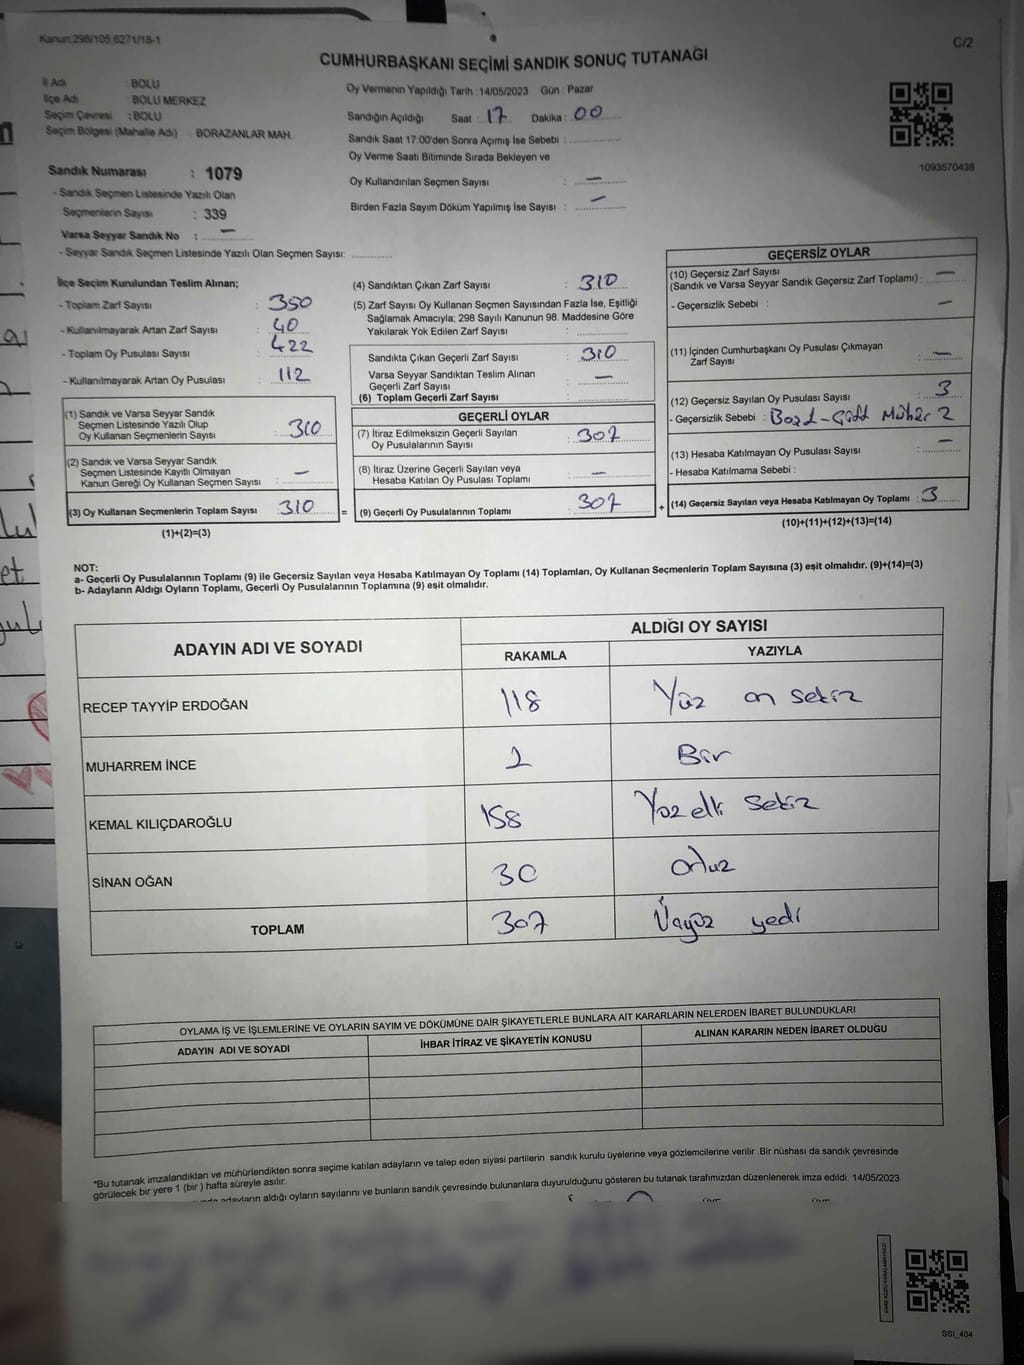 Kanun:298/105,6271/18-1
C/2
CUMHURBAŞKANI SEÇİMİ SANDIK SONUÇ TUTANAĞI
İl Adı : BOLU
İlçe Adı : BOLU MERKEZ
Seçim Çevresi : BOLU
Seçim Bölgesi (Mahalle Adı) : BORAZANLAR MAH.
Oy Vermenin Yapıldığı Tarih :14/05/2023 Gün : Pazar
Sandığın Açıldığı Saat : 17 Dakika : 00
Sandık Saat 17:00'den Sonra Açımış İse Sebebi :
Oy Verme Saati Bitiminde Sırada Bekleyen ve
Oy Kullandırılan Seçmen Sayısı : —
Birden Fazla Sayım Döküm Yapılmış İse Sayısı : —
1093570438
Sandık Numarası : 1079
- Sandık Seçmen Listesinde Yazılı Olan
Seçmenlerin Sayısı : 339
Varsa Seyyar Sandık No : —
- Seyyar Sandık Seçmen Listesinde Yazılı Olan Seçmen Sayısı:
İlçe Seçim Kurulundan Teslim Alınan;
- Toplam Zarf Sayısı : 350
- Kullanılmayarak Artan Zarf Sayısı : 40
- Toplam Oy Pusulası Sayısı : 422
- Kullanılmayarak Artan Oy Pusulası : 112
(1) Sandık ve Varsa Seyyar Sandık
Seçmen Listesinde Yazılı Olup
Oy Kullanan Seçmenlerin Sayısı : 310
(2) Sandık ve Varsa Seyyar Sandık
Seçmen Listesinde Kayıtlı Olmayan
Kanun Gereği Oy Kullanan Seçmen Sayısı : —
(3) Oy Kullanan Seçmenlerin Toplam Sayısı : 310
(1)+(2)=(3)
=
(4) Sandıktan Çıkan Zarf Sayısı : 310
(5) Zarf Sayısı Oy Kullanan Seçmen Sayısından Fazla İse, Eşitliği
Sağlamak Amacıyla; 298 Sayılı Kanunun 98. Maddesine Göre
Yakılarak Yok Edilen Zarf Sayısı :
Sandıkta Çıkan Geçerli Zarf Sayısı : 310
Varsa Seyyar Sandıktan Teslim Alınan
Geçerli Zarf Sayısı : —
(6) Toplam Geçerli Zarf Sayısı :
GEÇERLİ OYLAR
(7) İtiraz Edilmeksizin Geçerli Sayılan
Oy Pusulalarının Sayısı : 307
(8) İtiraz Üzerine Geçerli Sayılan veya
Hesaba Katılan Oy Pusulası Toplamı : —
(9) Geçerli Oy Pusulalarının Toplamı : 307
+
GEÇERSİZ OYLAR
(10) Geçersiz Zarf Sayısı
(Sandık ve Varsa Seyyar Sandık Geçersiz Zarf Toplamı) : —
- Geçersizlik Sebebi : —
(11) İçinden Cumhurbaşkanı Oy Pusulası Çıkmayan
Zarf Sayısı : —
(12) Geçersiz Sayılan Oy Pusulası Sayısı : 3
- Geçersizlik Sebebi :
(13) Hesaba Katılmayan Oy Pusulası Sayısı : —
- Hesaba Katılmama Sebebi :
(14) Geçersiz Sayılan veya Hesaba Katılmayan Oy Toplamı : 3
(10)+(11)+(12)+(13)=(14)
NOT:
a- Geçerli Oy Pusulalarının Toplamı (9) ile Geçersiz Sayılan veya Hesaba Katılmayan Oy Toplamı (14) Toplamları, Oy Kullanan Seçmenlerin Toplam Sayısına (3) eşit olmalıdır. (9)+(14)=(3)
b- Adayların Aldığı Oyların Toplamı, Geçerli Oy Pusulalarının Toplamına (9) eşit olmalıdır.
ADAYIN ADI VE SOYADI
ALDIĞI OY SAYISI
RAKAMLA YAZIYLA
RECEP TAYYİP ERDOĞAN 118 Yüz on sekiz
MUHARREM İNCE 1 Bir
KEMAL KILIÇDAROĞLU 158 Yüz elli sekiz
SİNAN OĞAN 30 Otuz
TOPLAM 307 Üçyüz yedi
OYLAMA İŞ VE İŞLEMLERİNE VE OYLARIN SAYIM VE DÖKÜMÜNE DAİR ŞİKAYETLERLE BUNLARA AİT KARARLARIN NELERDEN İBARET BULUNDUKLARI
ADAYIN ADI VE SOYADI
İHBAR İTİRAZ VE ŞİKAYETİN KONUSU
ALINAN KARARIN NEDEN İBARET OLDUĞU
*Bu tutanak imzalandıktan ve mühürlendikten sonra seçime katılan adayların ve talep eden siyasi partilerin sandık kurulu üyelerine veya gözlemcilerine verilir .Bir nüshası da sandık çevresinde
görülecek bir yere 1 (bir ) hafta süreyle asılır.
adayların aldığı oyların sayılarını ve bunların sandık çevresinde bulunanlara duyurulduğunu gösteren bu tutanak tarafımızdan düzenlenerek imza edildi. 14/05/2023
SSI_404